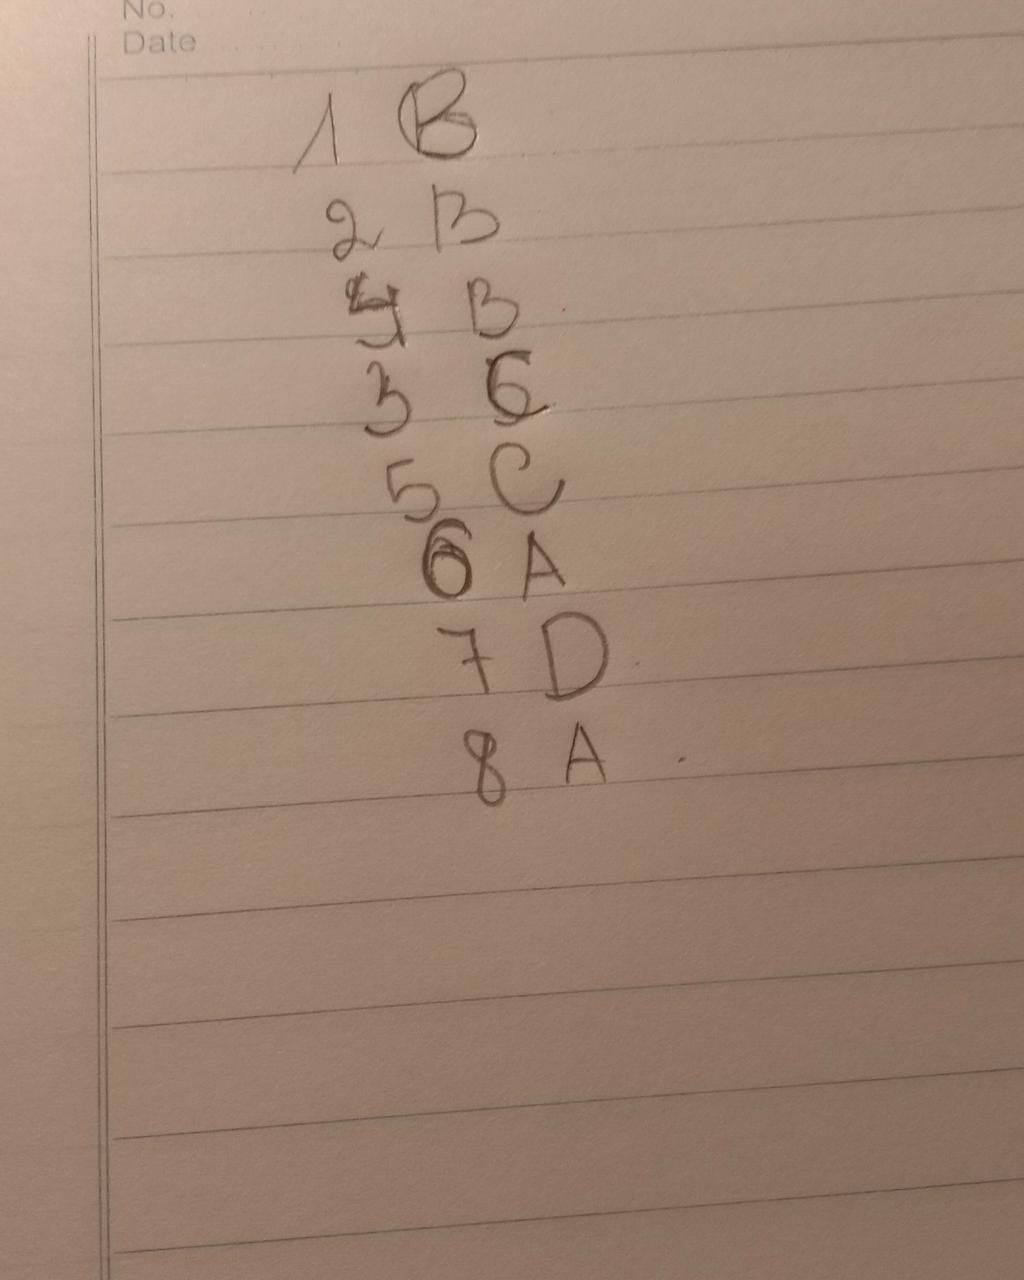 No.
Date
1 B
2 B
4 B
3 C
5 C
6 A
7 D
8 A